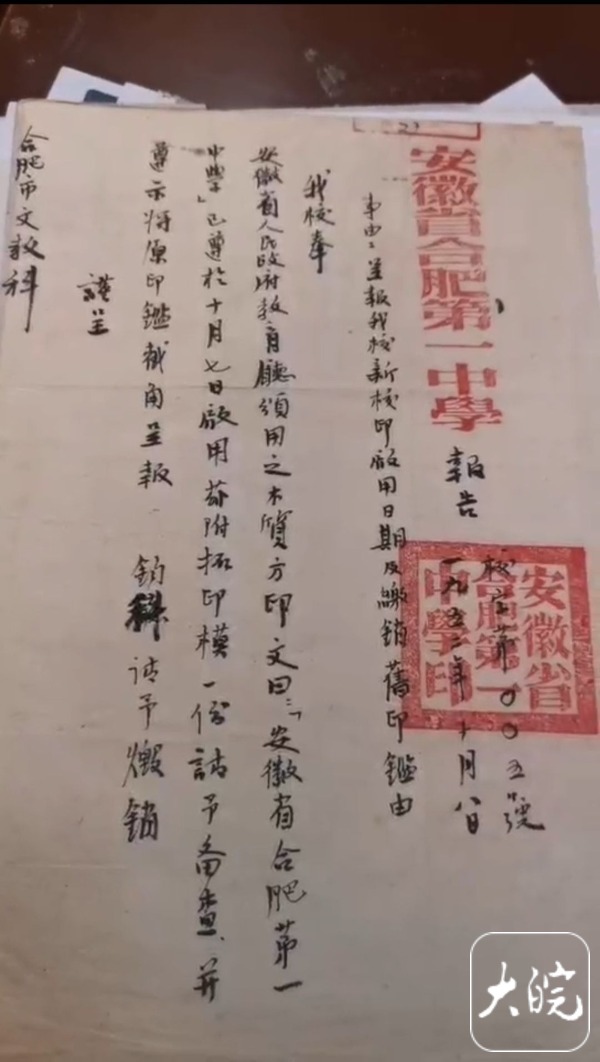 安徽省合肥第一中學
報告
校字第〇〇五號
一九五二年十月八日
安徽省
合肥第一
中學印
事由：呈報我校新校印啟用日期及繳銷舊印鑑由
我校奉
安徽省人民政府教育廳頒用之木質方印文曰：「安徽省合肥第一
中學」已遵於十月七日啟用茲附拓印模一份請予备查、并
遵示将原印鑑截角呈報 請予燬銷
謹呈
合肥市文教科
大皖